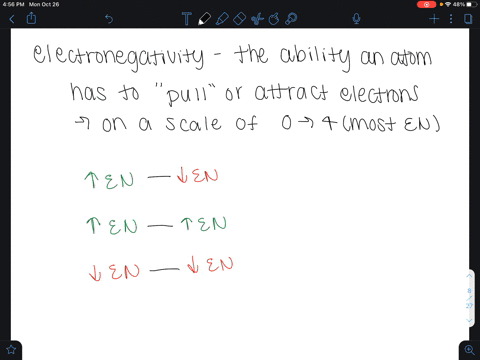 4:56 PM Mon Oct 26
48%
electronegativity - the ability an atom
has to "pull" or attract electrons
→ on a scale of 0 → 4 (most EN)
↑ EN — ↓ EN
↑ EN — ↑ EN
↓ EN — ↓ EN